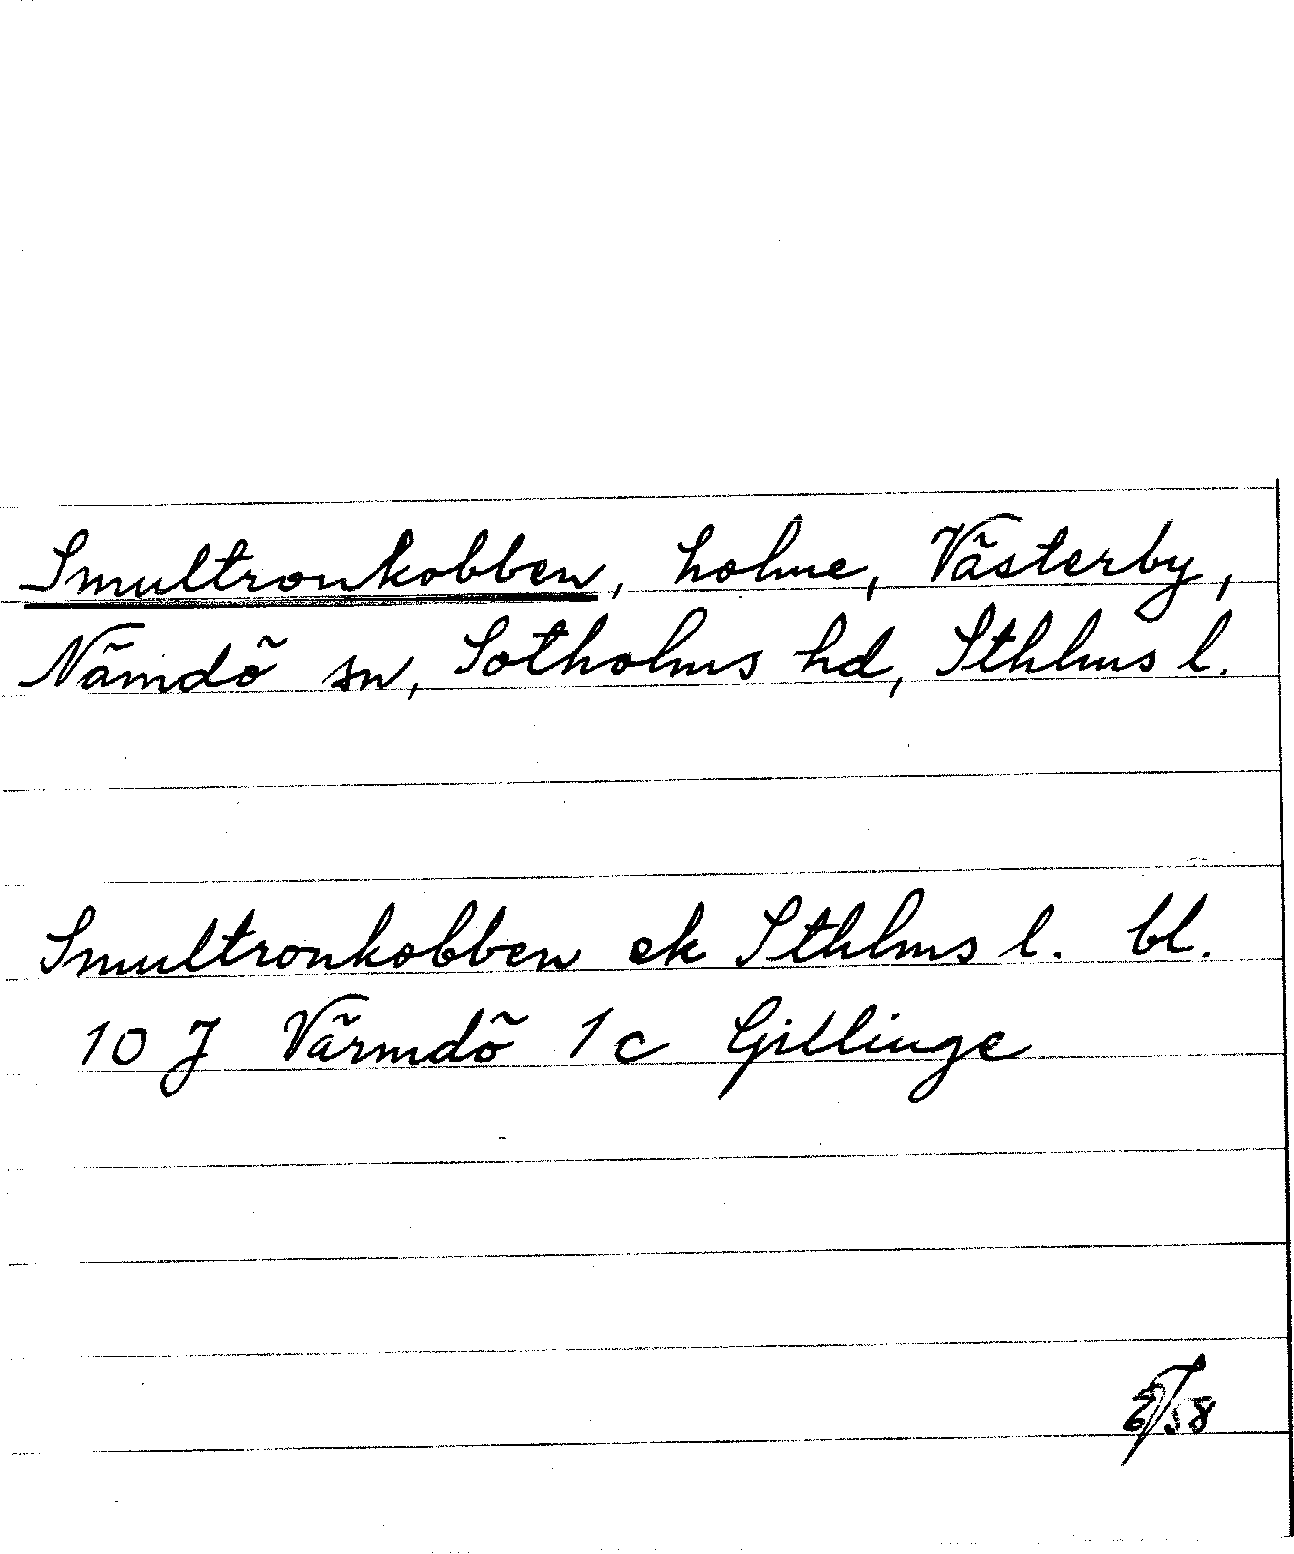 Smultronkobben, holme, Västerby,
Nämdö sn, Sotholms hd, Sthlms l.
Smultronkobben ek Sthlms l. bl.
10 J Värmdö 1 c Gillinge